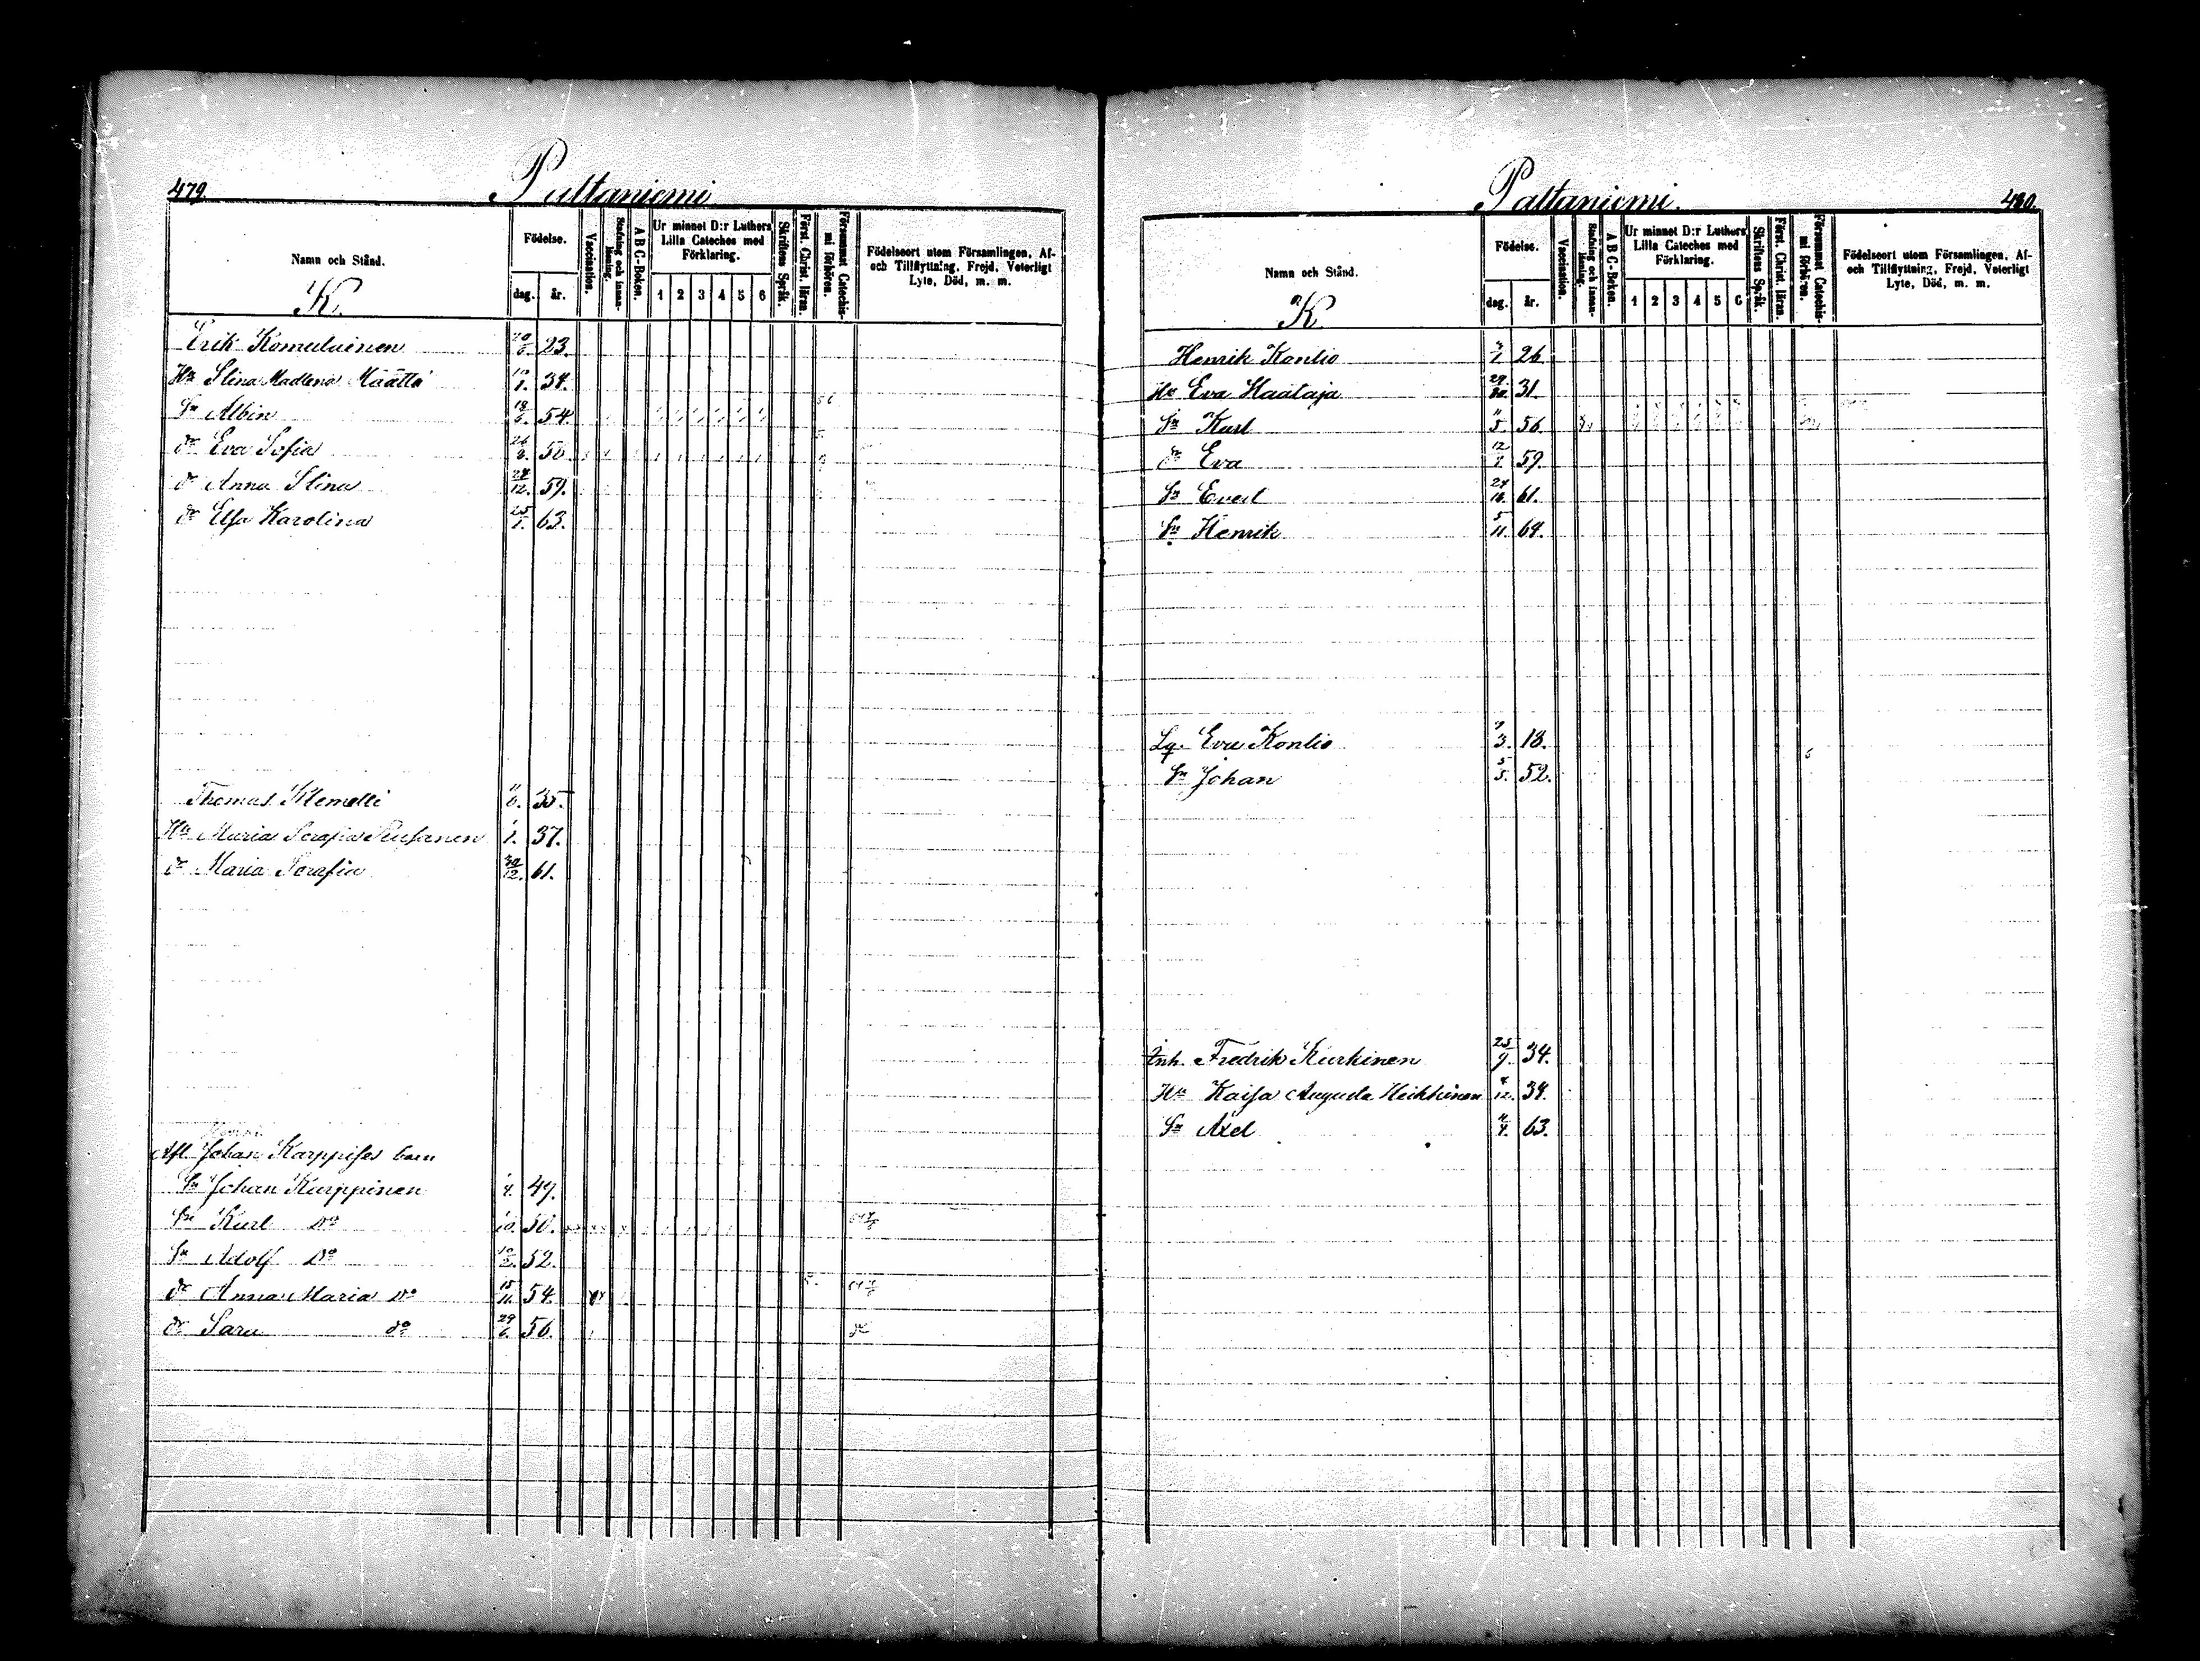 479.
Paltaniemi
Namn och Stånd.
K.
Födelse.
dag. år.
Vaccination.
Stafning och innan-läsning.
A B C-Boken.
Ur minnet D:r Luthers Lilla Cateches med Förklaring.
1 2 3 4 5 6
Skriftens Språk.
Först. Christ. läran.
Försummat Catechis-mi förhören.
Födelseort utom Församlingen, Af-
och Tillflyttning, Frejd, Veterligt
Lyte, Död, m. m.
Erik Komulainen 23.
Hu Stina Madlena Määttä 1. 34.
Sn Albin 54.
dr Eva Sofia 26
dr Anna Stina 12. 59.
dr Elsa Karolina 25 63.
Thomas Klemetti 35.
Hu Maria Serafia 1. 37.
dr Maria Serafia 30 12. 61.
Afl. Johan Karppises barn
Sn Johan Karppinen 49.
Sn Karl Do 10. 50.
Sn Adolf Do 52.
dr Anna Maria Do 15 11. 54.
dr Sara do 29 6. 56.
Paltaniemi.
480.
Namn och Stånd.
K
Födelse.
dag. år.
Vaccination.
Stafning och innan-läsning.
A B C-Boken.
Ur minnet D:r Luthers Lilla Cateches med Förklaring.
1 2 3 4 5 6
Skriftens Språk.
Först. Christ. läran.
Försummat Catechis-mi förhören.
Födelseort utom Församlingen, Af-
och Tillflyttning, Frejd, Veterligt
Lyte, Död, m. m.
Henrik Kontio 26.
Hu Eva Haataja 29 31.
Sn Karl 5. 56.
dr Eva 12 59.
Sn Evert 24 61.
Sn Henrik 5 11. 64.
Lg. Eva Kontio 3. 18.
Sn Johan 5 5. 52.
Inh. Fredrik Kurkinen 25 9. 34.
Hu Kaisa Augusta Heikkinen 12. 34.
Sn Axel 63.